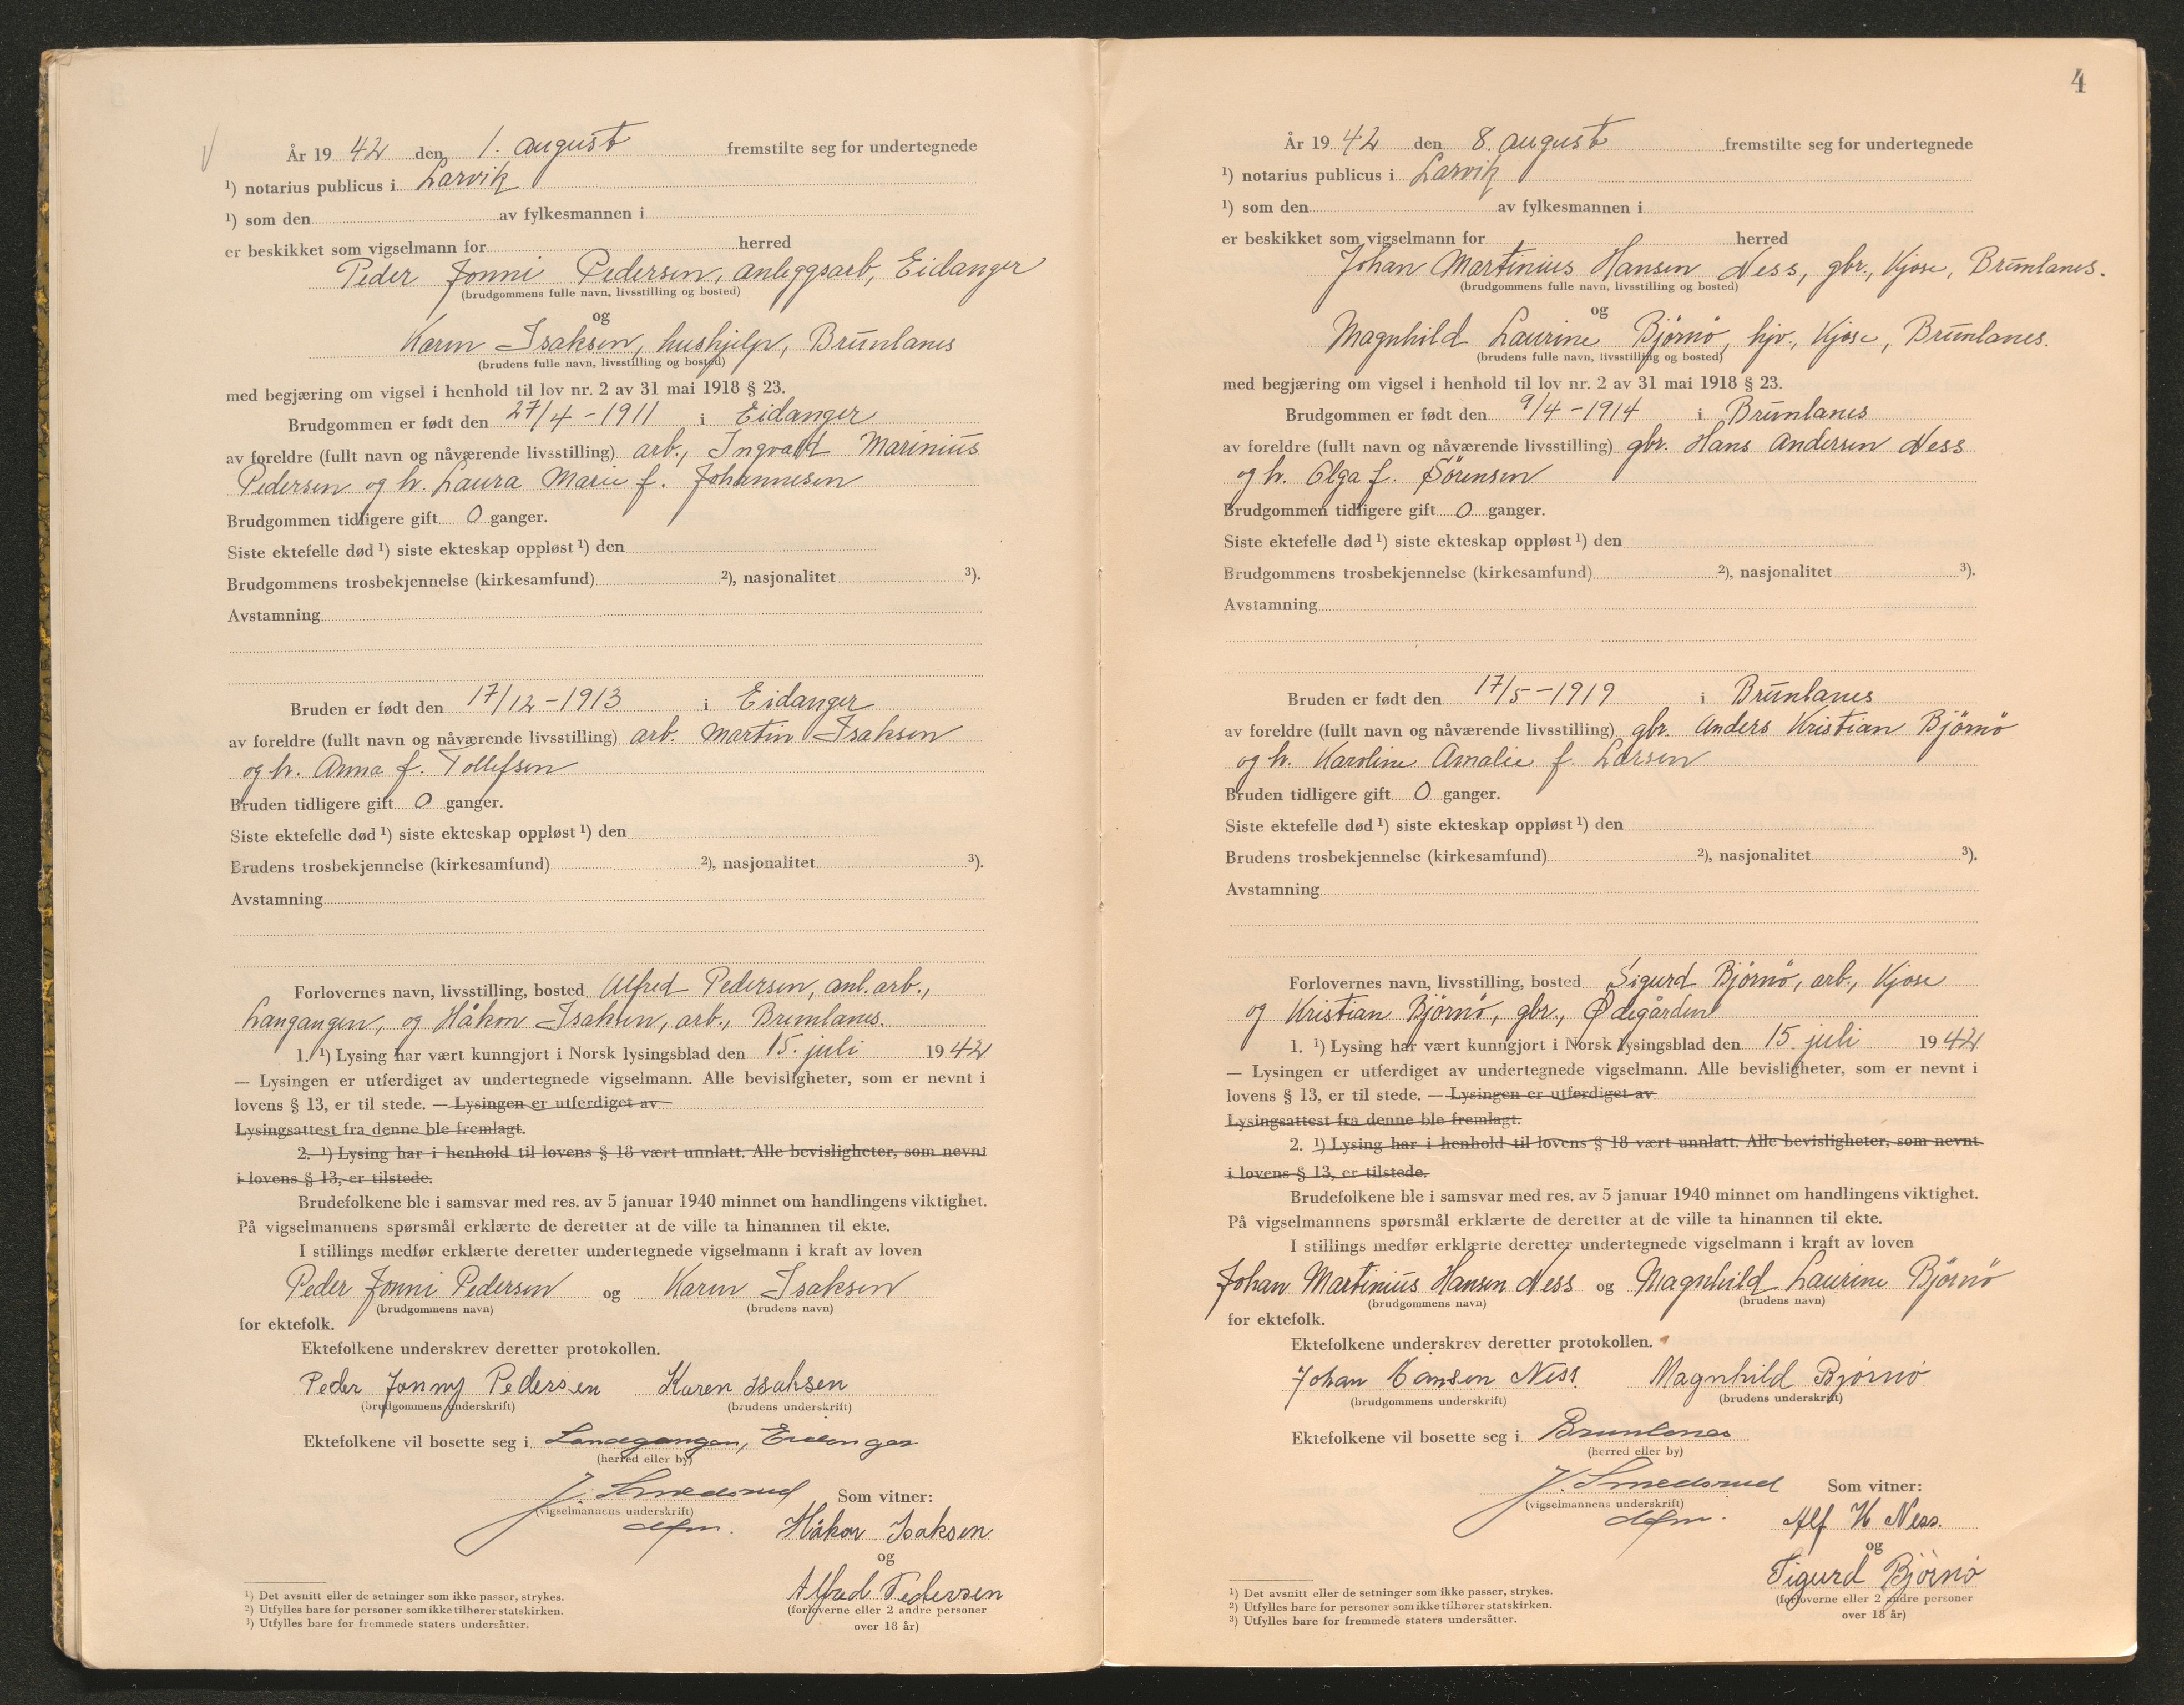 År 19 42 den 1. august fremstilte seg for undertegnede
¹) notarius publicus i Larvik
¹) som den av fylkesmannen i
er beskikket som vigselmann for herred
Peder Jonni Pedersen, anleggsarb, Eidanger
(brudgommens fulle navn, livsstilling og bosted)
og
Karen Isaksen, hushjelp, Brunlanes
(brudens fulle navn, livsstilling og bosted)
med begjæring om vigsel i henhold til lov nr. 2 av 31 mai 1918 § 23.
Brudgommen er født den 27/4 - 1911 i Eidanger
av foreldre (fullt navn og nåværende livsstilling) arb., Ingvald Marinius
Pedersen og h. Laura Marie f. Johannesen
Brudgommen tidligere gift 0 ganger.
Siste ektefelle død ¹) siste ekteskap oppløst ¹) den
Brudgommens trosbekjennelse (kirkesamfund) ²), nasjonalitet ³).
Avstamning
Bruden er født den 17/12 - 1913 i Eidanger
av foreldre (fullt navn og nåværende livsstilling) arb. Martin Isaksen
og h. Anna f. Tollefsen
Bruden tidligere gift 0 ganger.
Siste ektefelle død ¹) siste ekteskap oppløst ¹) den
Brudens trosbekjennelse (kirkesamfund) ²), nasjonalitet ³).
Avstamning
Forlovernes navn, livsstilling, bosted Alfred Pedersen, anl.arb.,
Langangen, og Håkon Isaksen, arb., Brunlanes.
1. ¹) Lysing har vært kunngjort i Norsk lysingsblad den 15. juli 19 42
— Lysingen er utferdiget av undertegnede vigselmann. Alle bevisligheter, som er nevnt i
lovens § 13, er til stede. — Lysingen er utferdiget av
Lysingsattest fra denne ble fremlagt.
2. ¹) Lysing har i henhold til lovens § 18 vært unnlatt. Alle bevisligheter, som nevnt
i lovens § 13, er tilstede.
Brudefolkene ble i samsvar med res. av 5 januar 1940 minnet om handlingens viktighet.
På vigselmannens spørsmål erklærte de deretter at de ville ta hinannen til ekte.
I stillings medfør erklærte deretter undertegnede vigselmann i kraft av loven
Peder Jonni Pedersen og Karen Isaksen
(brudgommens navn) (brudens navn)
for ektefolk.
Ektefolkene underskrev deretter protokollen.
Peder Jonny Pedersen Karen Isaksen
(brudgommens underskrift) (brudens underskrift)
Ektefolkene vil bosette seg i Langangen, Eidanger
(herred eller by)
J. Smedsrud Som vitner:
(vigselmannens underskrift)
Håkon Isaksen
og
Alfred Pedersen
(forloverne eller 2 andre personer
over 18 år)
¹) Det avsnitt eller de setninger som ikke passer, strykes.
²) Utfylles bare for personer som ikke tilhører statskirken.
³) Utfylles bare for fremmede staters undersåtter.
4
År 19 42 den 8. august fremstilte seg for undertegnede
¹) notarius publicus i Larvik
¹) som den av fylkesmannen i
er beskikket som vigselmann for herred
Johan Martinius Hansen Ness, gbr., Kjose, Brunlanes.
(brudgommens fulle navn, livsstilling og bosted)
og
Magnhild Laurine Björnö, hjv., Kjose, Brunlanes.
(brudens fulle navn, livsstilling og bosted)
med begjæring om vigsel i henhold til lov nr. 2 av 31 mai 1918 § 23.
Brudgommen er født den 9/4 - 1914 i Brunlanes
av foreldre (fullt navn og nåværende livsstilling) gbr. Hans Andersen Ness
og h. Olga f. Sörensen
Brudgommen tidligere gift 0 ganger.
Siste ektefelle død ¹) siste ekteskap oppløst ¹) den
Brudgommens trosbekjennelse (kirkesamfund) ²), nasjonalitet ³).
Avstamning
Bruden er født den 17/5 - 1919 i Brunlanes
av foreldre (fullt navn og nåværende livsstilling) gbr. Anders Kristian Björnö
og h. Karoline Amalie f. Larsen
Bruden tidligere gift 0 ganger.
Siste ektefelle død ¹) siste ekteskap oppløst ¹) den
Brudens trosbekjennelse (kirkesamfund) ²), nasjonalitet ³).
Avstamning
Forlovernes navn, livsstilling, bosted Sigurd Björnö, arb., Kjose
og Kristian Björnö, gbr., Ødegården
1. ¹) Lysing har vært kunngjort i Norsk lysingsblad den 15. juli 19 42
— Lysingen er utferdiget av undertegnede vigselmann. Alle bevisligheter, som er nevnt i
lovens § 13, er til stede. — Lysingen er utferdiget av
Lysingsattest fra denne ble fremlagt.
2. ¹) Lysing har i henhold til lovens § 18 vært unnlatt. Alle bevisligheter, som nevnt
i lovens § 13, er tilstede.
Brudefolkene ble i samsvar med res. av 5 januar 1940 minnet om handlingens viktighet.
På vigselmannens spørsmål erklærte de deretter at de ville ta hinannen til ekte.
I stillings medfør erklærte deretter undertegnede vigselmann i kraft av loven
Johan Martinius Hansen Ness og Magnhild Laurine Björnö
(brudgommens navn) (brudens navn)
for ektefolk.
Ektefolkene underskrev deretter protokollen.
Johan Hansen Ness. Magnhild Bjørnø
(brudgommens underskrift) (brudens underskrift)
Ektefolkene vil bosette seg i Brunlanes
(herred eller by)
J. Smedsrud Som vitner:
(vigselmannens underskrift)
Alf H Ness.
og
Sigurd Björnö
(forloverne eller 2 andre personer
over 18 år)
¹) Det avsnitt eller de setninger som ikke passer, strykes.
²) Utfylles bare for personer som ikke tilhører statskirken.
³) Utfylles bare for fremmede staters undersåtter.